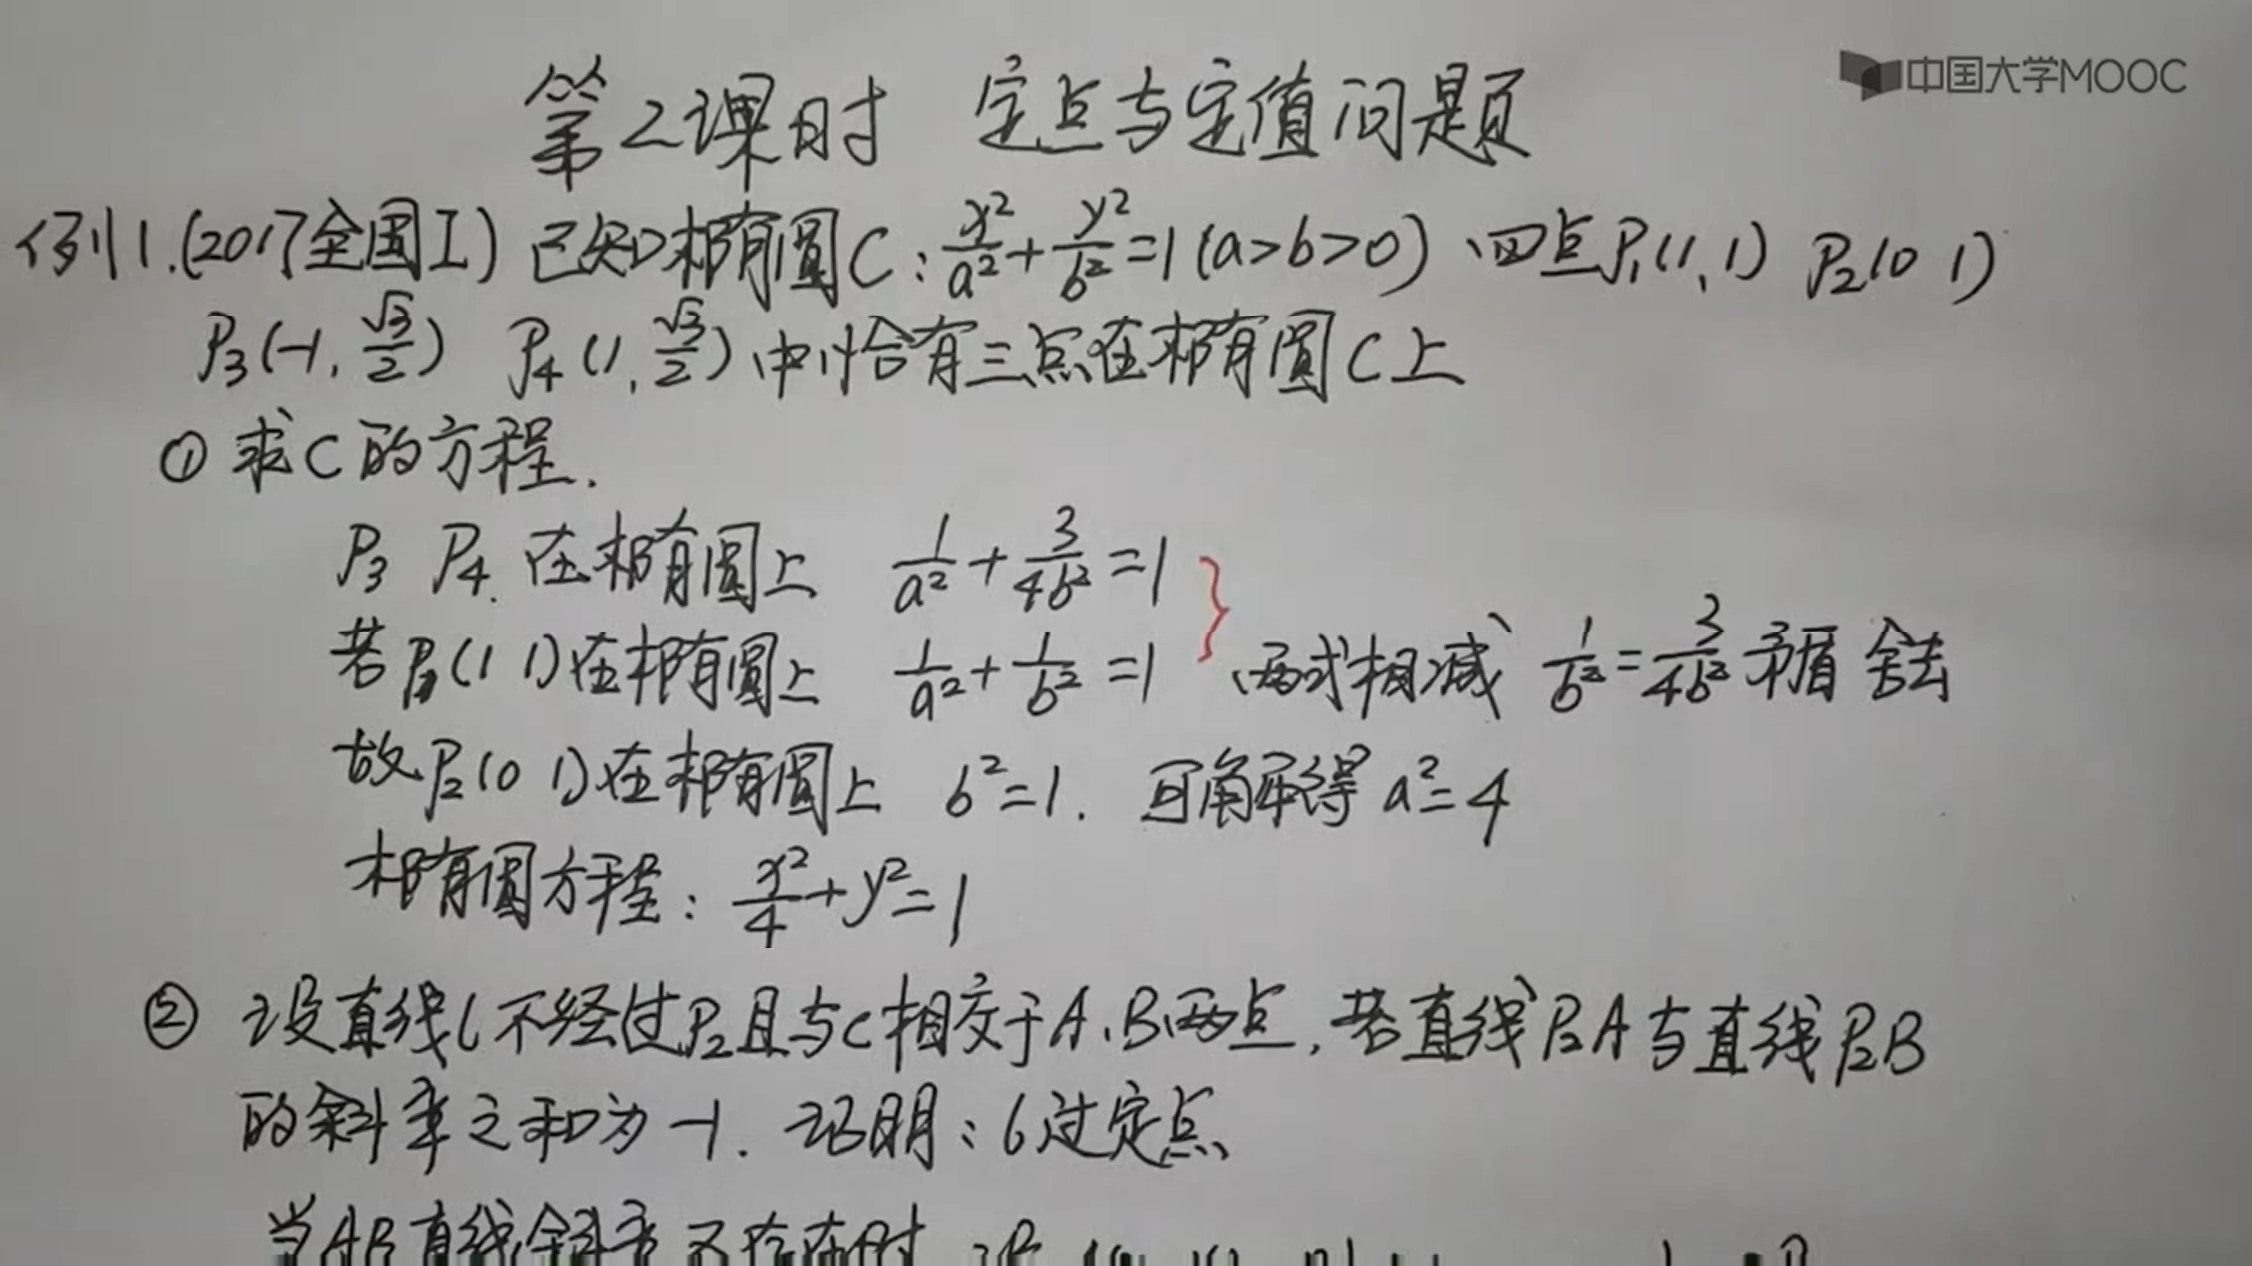 中国大学MOOC
第2课时 定点与定值问题
例1.(2017全国I) 已知椭圆C:x²/a²+y²/b²=1(a>b>0)、四点P₁(1,1) P₂(0 1)
P₃(-1,√3/2) P₄(1,√3/2)中恰有三点在椭圆C上
① 求C的方程.
P₃ P₄.在椭圆上 1/a²+3/4b²=1
若P₁(1 1)在椭圆上 1/a²+1/b²=1 } 两式相减 1/b²=3/4b² 矛盾 舍去
故P₂(0 1)在椭圆上 b²=1. 可解得 a²=4
椭圆方程:x²/4+y²=1
② 设直线l不经过P₂且与C相交于A、B两点,若直线P₂A与直线P₂B
的斜率之和为-1. 证明:l过定点
当AB直线斜率不存在时